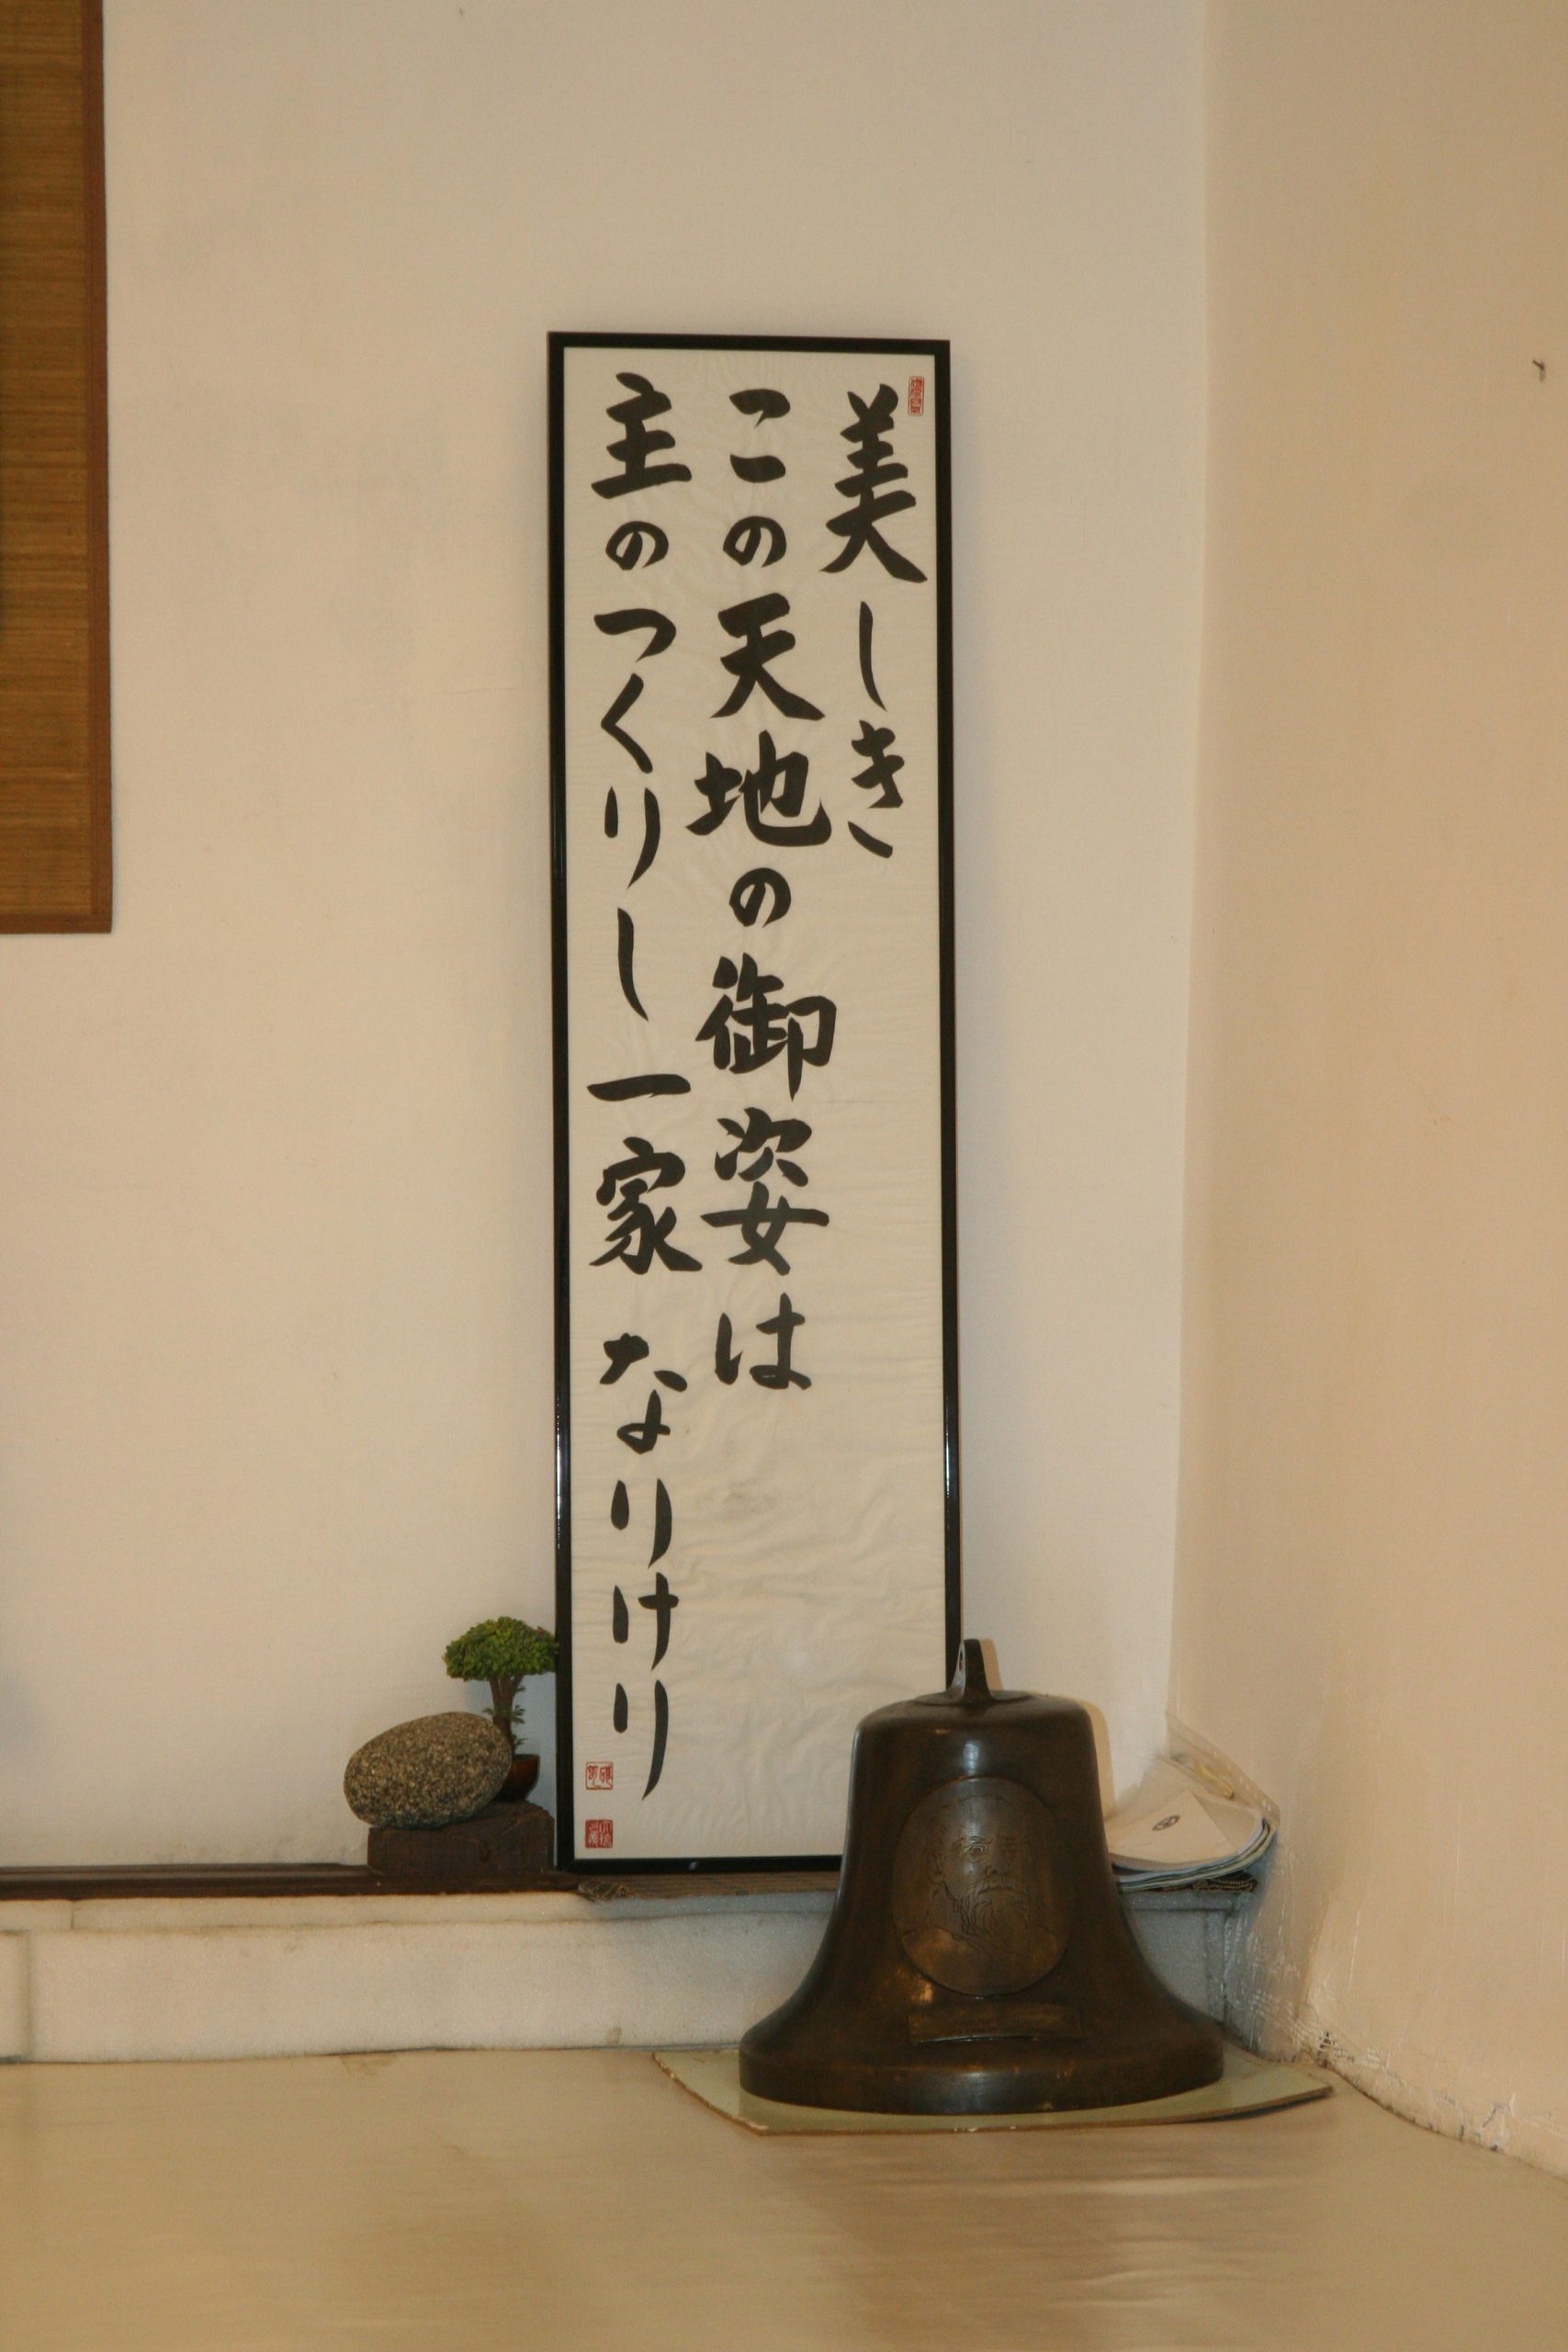 美しき
この天地の御姿は
主のつくりし一家なりけり